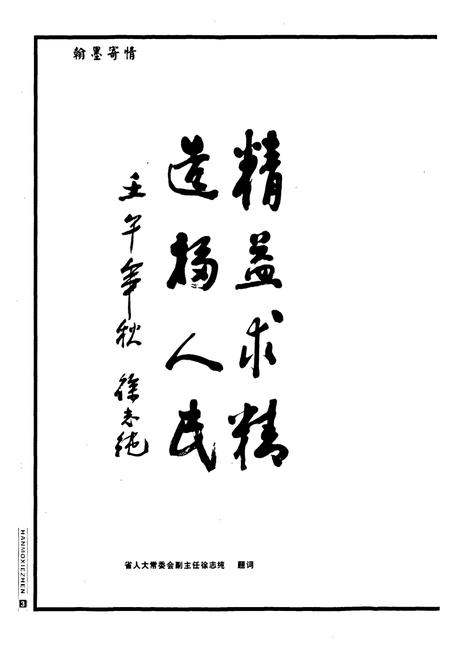 翰墨寄情
精益求精
造福人民
壬午年秋 徐志纯
省人大常委会副主任徐志纯 题词
HANMOXIEZHEN
3